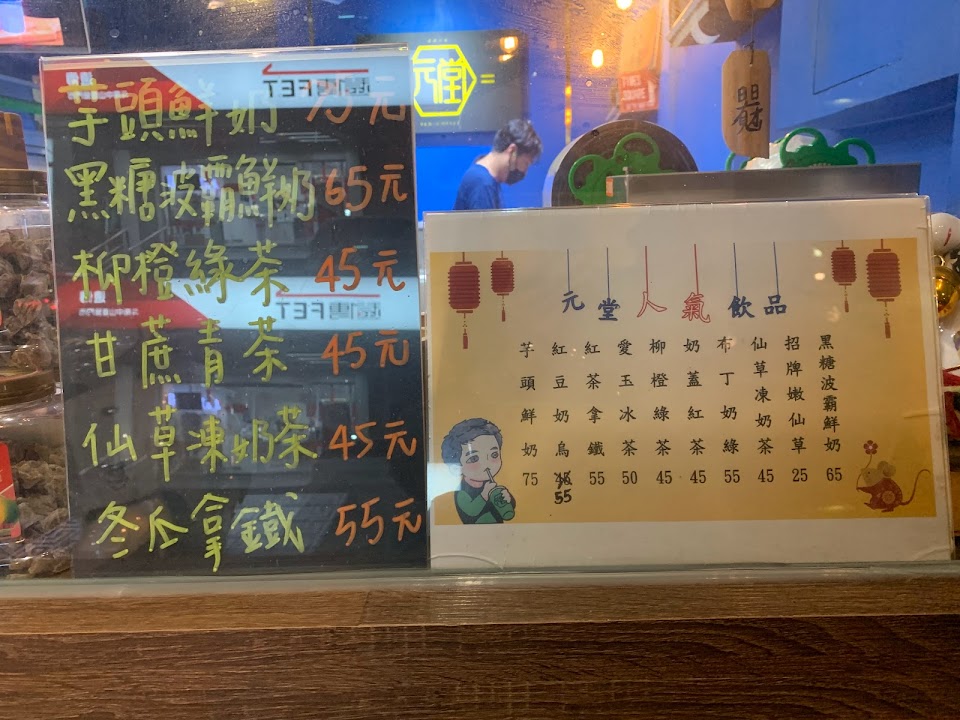 芋頭鮮奶 75元
黑糖波霸鮮奶 65元
柳橙綠茶 45元
甘蔗青茶 45元
仙草凍奶茶 45元
冬瓜拿鐵 55元
FET
FET
元堂
元堂人氣飲品
黑糖波霸鮮奶 65
招牌嫩仙草 25
仙草凍奶茶 45
布丁奶綠 55
奶蓋紅茶 45
柳橙綠茶 45
愛玉冰茶 50
紅茶拿鐵 55
紅豆奶烏 55
芋頭鮮奶 75